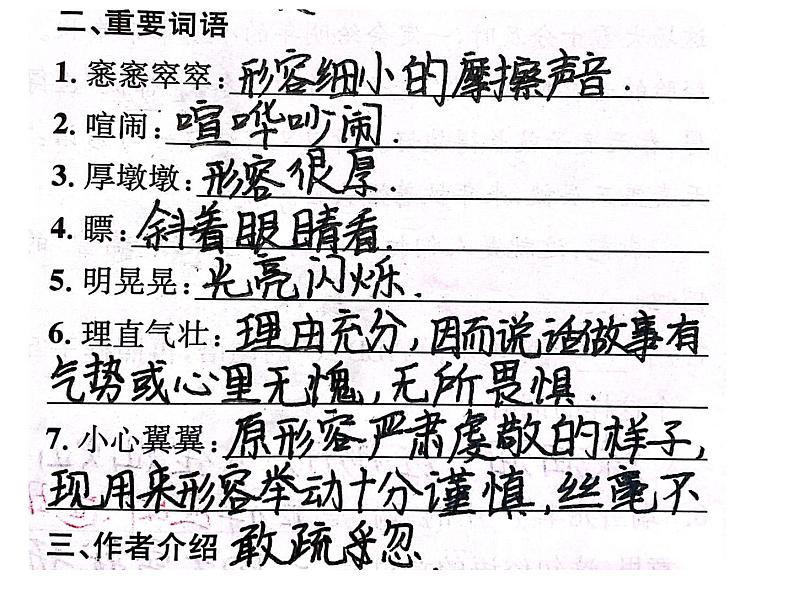 二、重要词语
1. 窸窸窣窣:形容细小的摩擦声音.
2. 喧闹:喧哗吵闹.
3. 厚墩墩:形容很厚.
4. 瞟:斜着眼睛看.
5. 明晃晃:光亮闪烁.
6. 理直气壮:理由充分,因而说话做事有
气势或心里无愧,无所畏惧.
7. 小心翼翼:原形容严肃虔敬的样子,
现用来形容举动十分谨慎,丝毫不
三、作者介绍 敢疏乎忽.